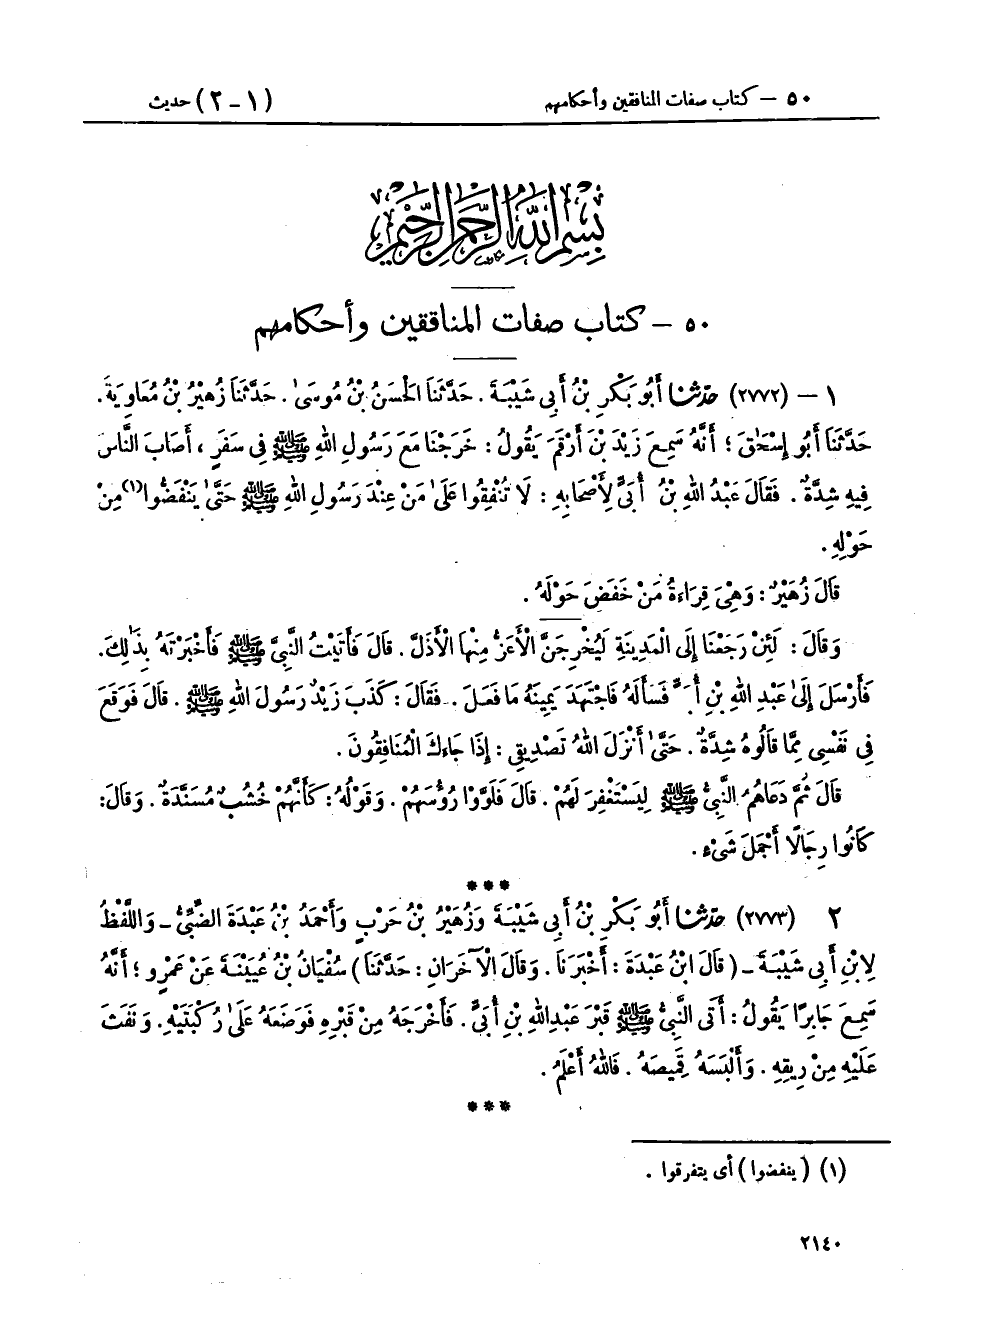 ٥٠ – كتاب صفات المنافقين وأحكامهم (١ – ٢) حديث
بسم الله الرحمن الرحيم
٥٠ – كتاب صفات المنافقين وأحكامهم
١ – (٢٧٧٢) حَدَّثَنَا أَبُو بَكْرِ بْنُ أَبِي شَيْبَةَ. حَدَّثَنَا الْحَسَنُ بْنُ مُوسَىٰ. حَدَّثَنَا زُهَيْرُ بْنُ مُعَاوِيَةَ.
حَدَّثَنَا أَبُو إِسْحَاقَ؛ أَنَّهُ سَمِعَ زَيْدَ بْنَ أَرْقَمَ يَقُولُ: خَرَجْنَا مَعَ رَسُولِ اللهِ ﷺ فِي سَفَرٍ، أَصَابَ النَّاسَ
فِيهِ شِدَّةٌ. فَقَالَ عَبْدُ اللهِ بْنُ أُبَيٍّ لِأَصْحَابِهِ: لَا تُنْفِقُوا عَلَىٰ مَنْ عِنْدَ رَسُولِ اللهِ ﷺ حَتَّىٰ يَنْفَضُّوا(١) مِنْ
حَوْلِهِ.
قَالَ زُهَيْرٌ: وَهِيَ قِرَاءَةُ مَنْ خَفَضَ حَوْلَهُ.
وَقَالَ: لَئِنْ رَجَعْنَا إِلَى الْمَدِينَةِ لَيُخْرِجَنَّ الْأَعَزُّ مِنْهَا الْأَذَلَّ. قَالَ فَأَتَيْتُ النَّبِيَّ ﷺ فَأَخْبَرْتُهُ بِذَٰلِكَ.
فَأَرْسَلَ إِلَىٰ عَبْدِ اللهِ بْنِ أُبَيٍّ فَسَأَلَهُ فَاجْتَهَدَ يَمِينَهُ مَا فَعَلَ. فَقَالَ: كَذَبَ زَيْدٌ رَسُولَ اللهِ ﷺ. قَالَ فَوَقَعَ
فِي نَفْسِي مِمَّا قَالُوهُ شِدَّةٌ. حَتَّىٰ أَنْزَلَ اللهُ تَصْدِيقِي: إِذَا جَاءَكَ الْمُنَافِقُونَ.
قَالَ ثُمَّ دَعَاهُمُ النَّبِيُّ ﷺ لِيَسْتَغْفِرَ لَهُمْ. قَالَ فَلَوَّوْا رُؤُسَهُمْ. وَقَوْلُهُ: كَأَنَّهُمْ خُشُبٌ مُسَنَّدَةٌ. وَقَالَ:
كَانُوا رِجَالًا أَجْمَلَ شَيْءٍ.
***
٢ (٢٧٧٣) حَدَّثَنَا أَبُو بَكْرِ بْنُ أَبِي شَيْبَةَ وَزُهَيْرُ بْنُ حَرْبٍ وَأَحْمَدُ بْنُ عَبْدَةَ الضَّبِّيُّ – وَاللَّفْظُ
لِابْنِ أَبِي شَيْبَةَ – (قَالَ ابْنُ عَبْدَةَ: أَخْبَرَنَا. وَقَالَ الْآخَرَانِ: حَدَّثَنَا) سُفْيَانُ بْنُ عُيَيْنَةَ عَنْ عَمْرٍو؛ أَنَّهُ
سَمِعَ جَابِرًا يَقُولُ: أَتَى النَّبِيُّ ﷺ قَبْرَ عَبْدِ اللهِ بْنِ أُبَيٍّ. فَأَخْرَجَهُ مِنْ قَبْرِهِ فَوَضَعَهُ عَلَىٰ رُكْبَتَيْهِ. وَنَفَثَ
عَلَيْهِ مِنْ رِيقِهِ. وَأَلْبَسَهُ قَمِيصَهُ. فَاللهُ أَعْلَمُ.
***
(١) (ينفضوا) أى يتفرقوا.
٢١٤٠